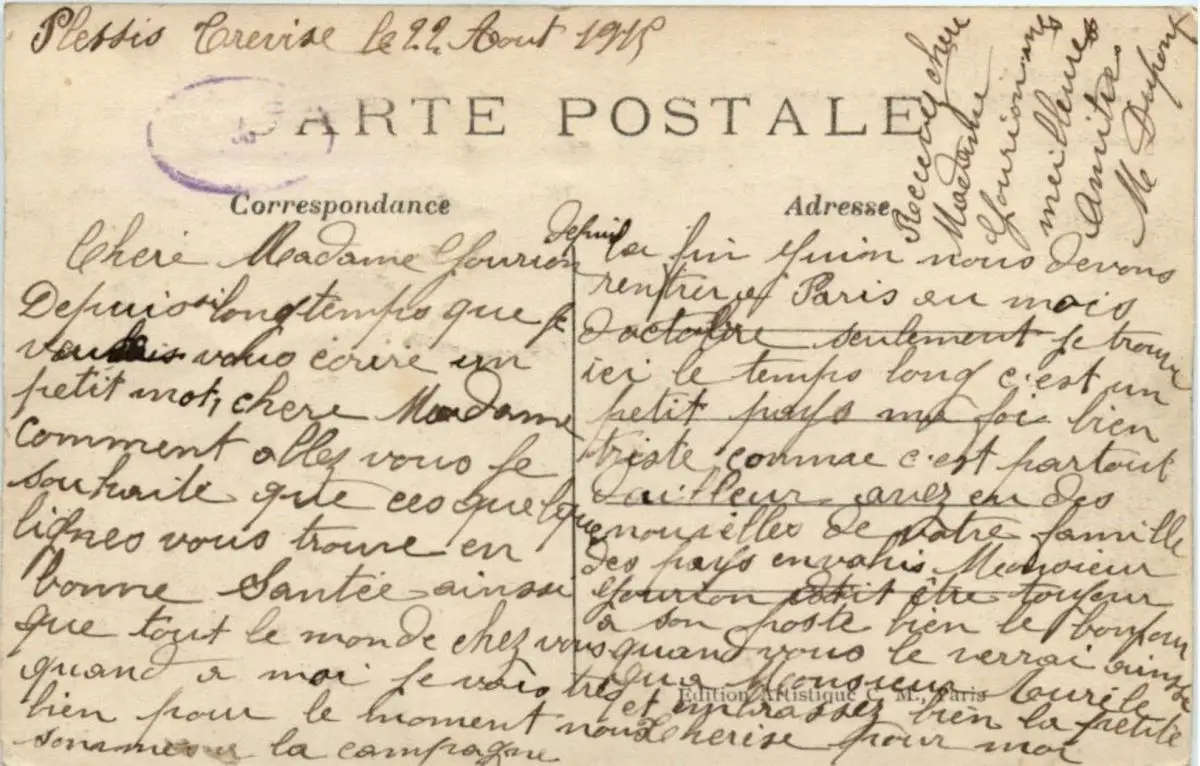 Plessis Trevise le 22 Aout 1915
CARTE POSTALE
Correspondance
Adresse
Cheri Madame Gourion
Depuis si longtemps que je
voulais vous écrire un
petit mot, chere Madame
comment allez vous je
souhaite que ces quelque
lignes vous trouve en
bonne Santée ainssi
que tout le monde chez vous
quand a moi je vais très
bien pour le moment nous
sommes a la campagne
depuis la fin Juin nous devons
rentrer a Paris au mois
d'octobre seulement je trouve
ici le temps long c'est un
petit pays ma foi bien
triste comme c'est partout
d'ailleur avez eu des
nouvelles de votre famille
des pays envahis Monsieur
Gourion doit être toujour
a son poste bien le bonjour
quand vous le verrai ainssi
qu'a Monsieur Aurèle
et embrassez bien la petite
Cherise pour moi
Recevez chere
Madame
Gourion mes
meilleures
Amitiés
M Dupont
Edition Artistique C. M., Paris